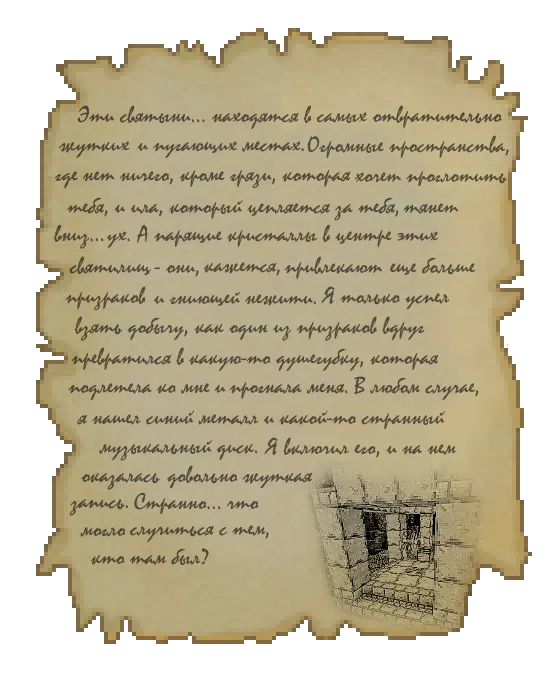 Эти святыни... находятся в самых отвратительно
жутких и пугающих местах. Огромные пространства,
где нет ничего, кроме грязи, которая хочет проглотить
тебя, и ила, который цепляется за тебя, тянет
вниз...ух. А парящие кристаллы в центре этих
святилищ - они, кажется, привлекают еще больше
призраков и гниющей нежити. Я только успел
взять добычу, как один из призраков вдруг
превратился в какую-то душегубку, которая
подлетела ко мне и прогнала меня. В любом случае,
я нашел синий металл и какой-то странный
музыкальный диск. Я включил его, и на нем
оказалась довольно жуткая
запись. Странно... что
могло случиться с тем,
кто там был?